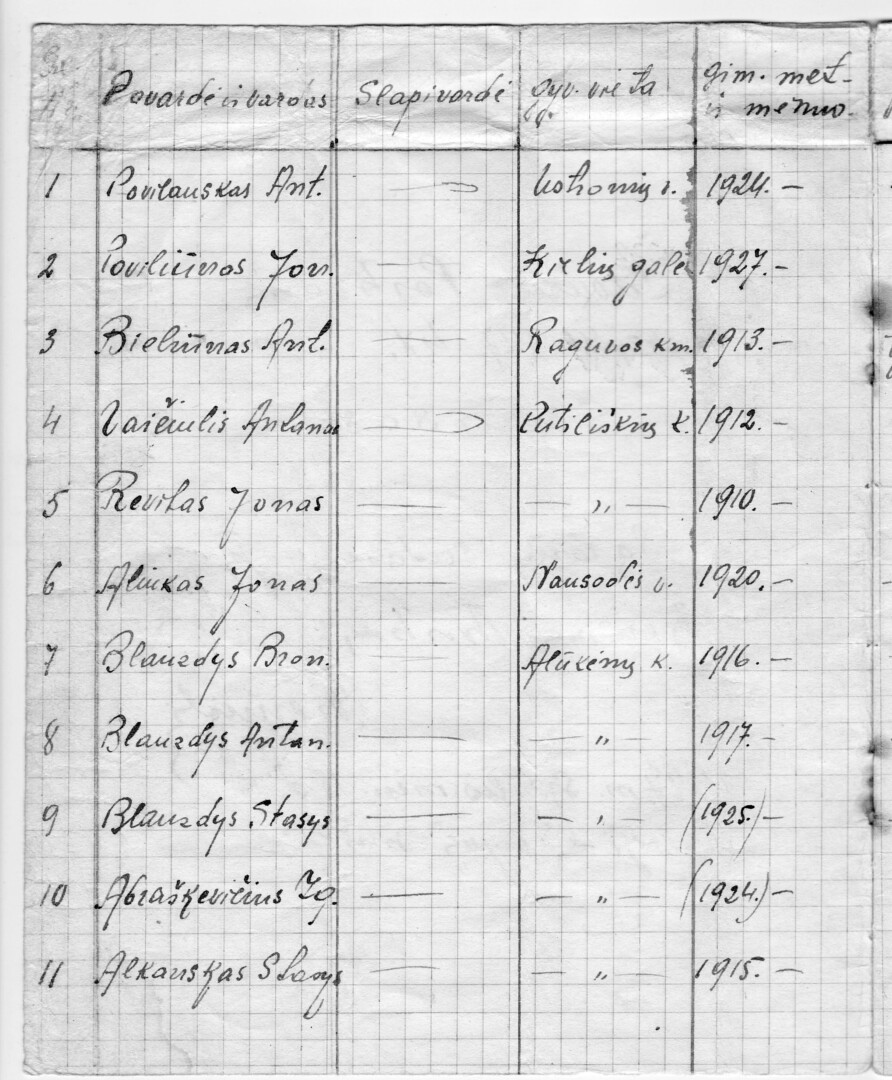 Pavardė ir vardas Slapivardė gyv. vieta gim. met.
ir mėnuo.
1 Povilauskas Ant. — 1924. —
2 Poviliūnas Jon. — Kielių galė 1927. —
3 Bieliūnas Ant. — Raguvos km. 1913. —
4 Vaičiulis Antanas — Putiliškių k. 1912. —
5 Revitas Jonas — — „ — 1910. —
6 Aliukas Jonas — Nausodės v. 1920. —
7 Blauzdys Bron. — Alūkėnų k. 1916. —
8 Blauzdys Antan. — — „ — 1917. —
9 Blauzdys Stasys — — „ — (1925.) —
10 Abraškevičius Ig. — — „ — (1924.) —
11 Alkauskas Stasys — — „ — 1915. —